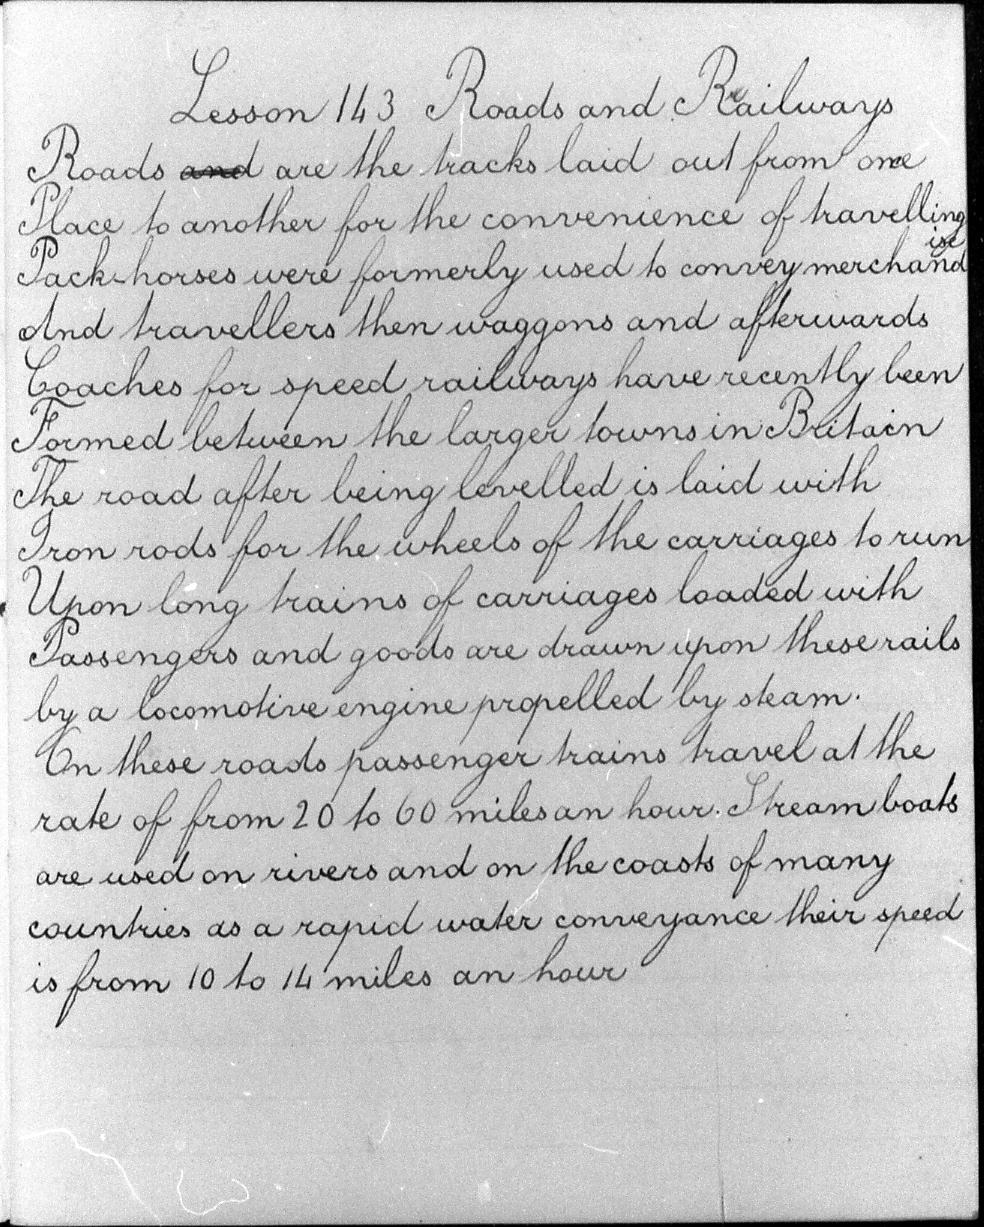 Lesson 143 Roads and Railways
Roads and are the tracks laid out from one
Place to another for the convenience of travelling
Pack-horses were formerly used to convey merchandise
And travellers then waggons and afterwards
Coaches for speed railways have recently been
Formed between the larger towns in Britain
The road after being levelled is laid with
Iron rods for the wheels of the carriages to run
Upon long trains of carriages loaded with
Passengers and goods are drawn upon these rails
by a locomotive engine propelled by steam.
On these roads passenger trains travel at the
rate of from 20 to 60 miles an hour. Stream boats
are used on rivers and on the coasts of many
countries as a rapid water conveyance their speed
is from 10 to 14 miles an hour